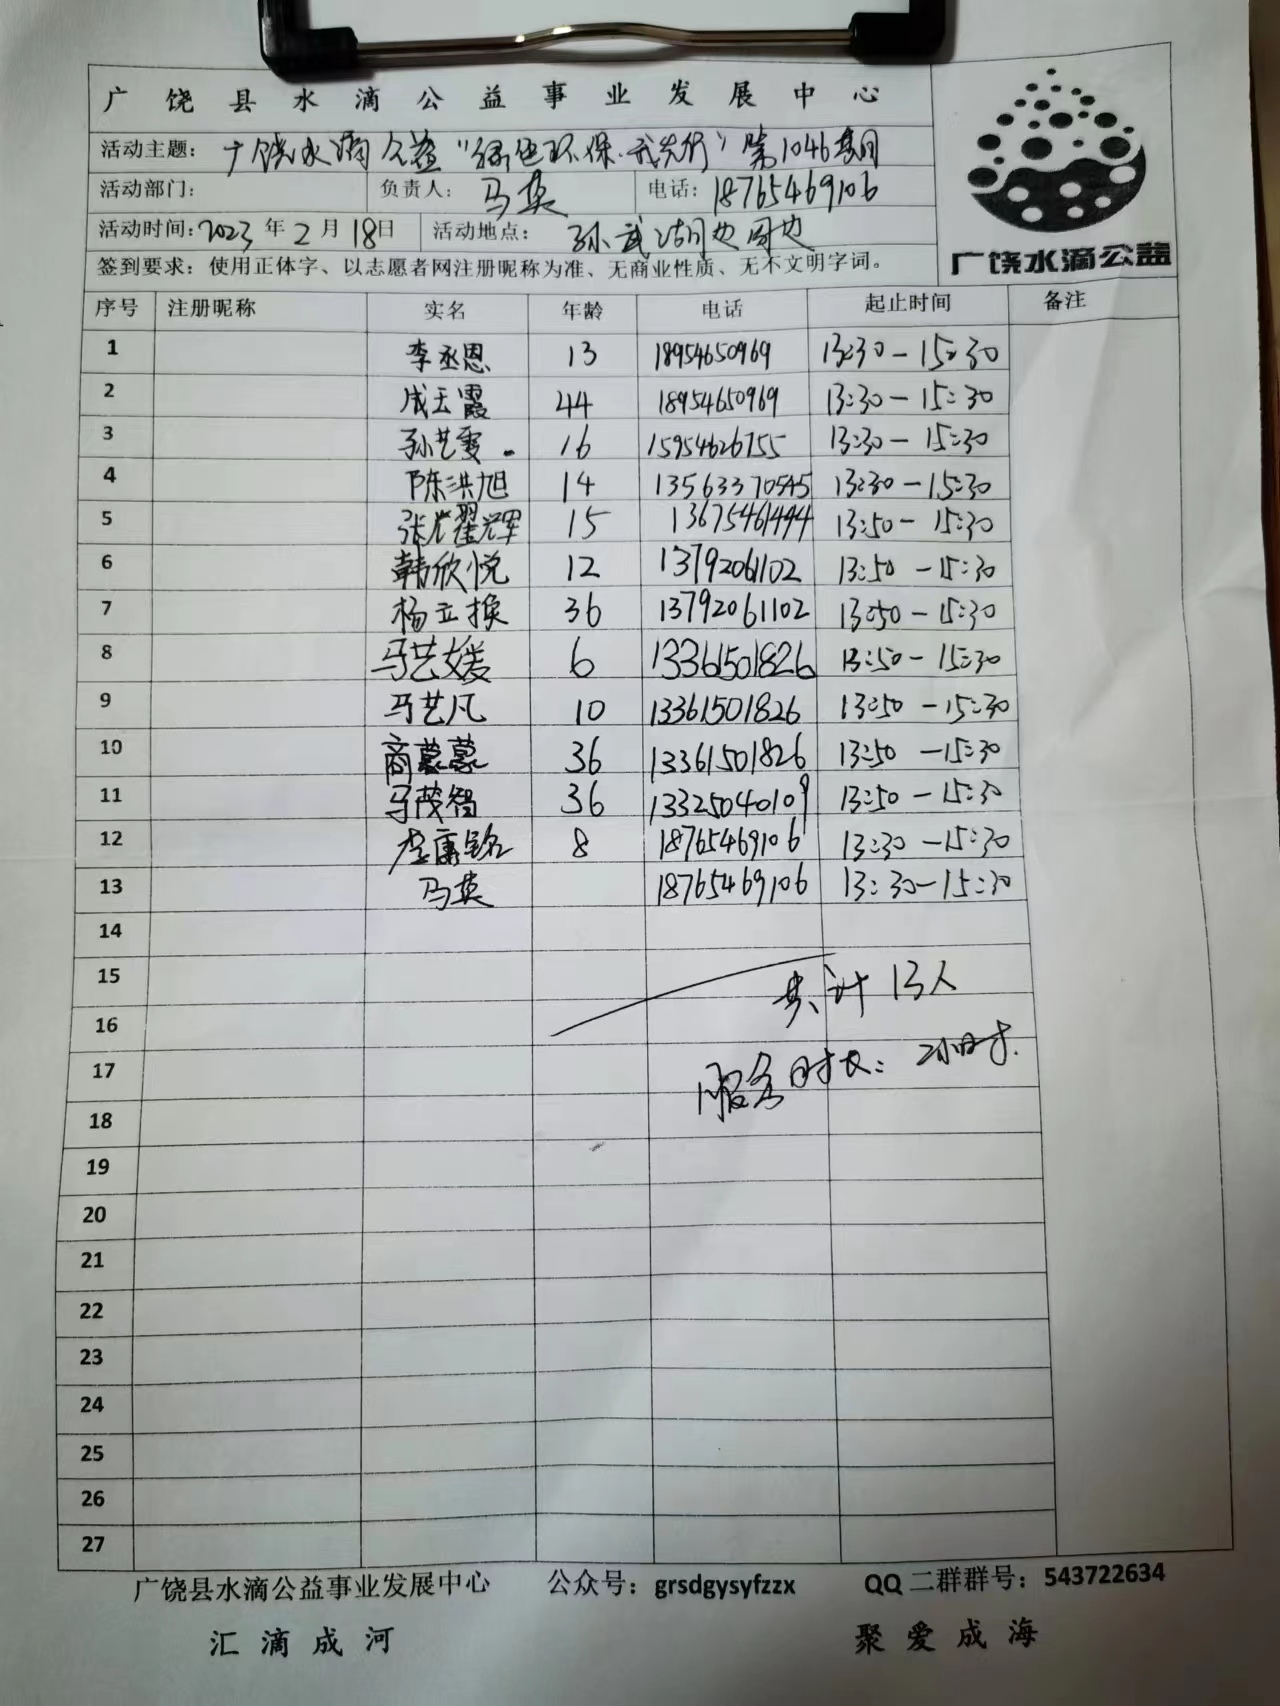 广饶县水滴公益事业发展中心
活动主题: 广饶水滴公益“绿色环保.我先行”第1046期
活动部门: 负责人: 马英 电话: 18765469106
活动时间: 2023年2月18日 活动地点: 孙武湖边周边
签到要求: 使用正体字、以志愿者网注册昵称为准、无商业性质、无不文明字词。
广饶水滴公益
序号 注册昵称 实名 年龄 电话 起止时间 备注
1 李丞恩 13 18954650969 13:30-15:30
2 成玉霞 44 18954650969 13:30-15:30
3 孙艺雯 16 15954626755 13:30-15:30
4 陈洪旭 14 13563370545 13:30-15:30
5 15 13675461494 13:50-15:30
6 韩欣悦 12 13792061102 13:50-15:30
7 杨立换 36 13792061102 13:50-15:30
8 马艺媛 6 13361501826 13:50-15:30
9 马艺凡 10 13361501826 13:50-15:30
10 商蒙蒙 36 13361501826 13:50-15:30
11 马茂智 36 13325040109 13:50-15:30
12 8 18765469106 13:30-15:30
13 马英 18765469106 13:30-15:30
14
15 共计13人
16
17 服务时长: 2小时.
18
19
20
21
22
23
24
25
26
27
广饶县水滴公益事业发展中心 公众号: grsdgysyfzzx QQ二群群号: 543722634
汇滴成河 聚爱成海